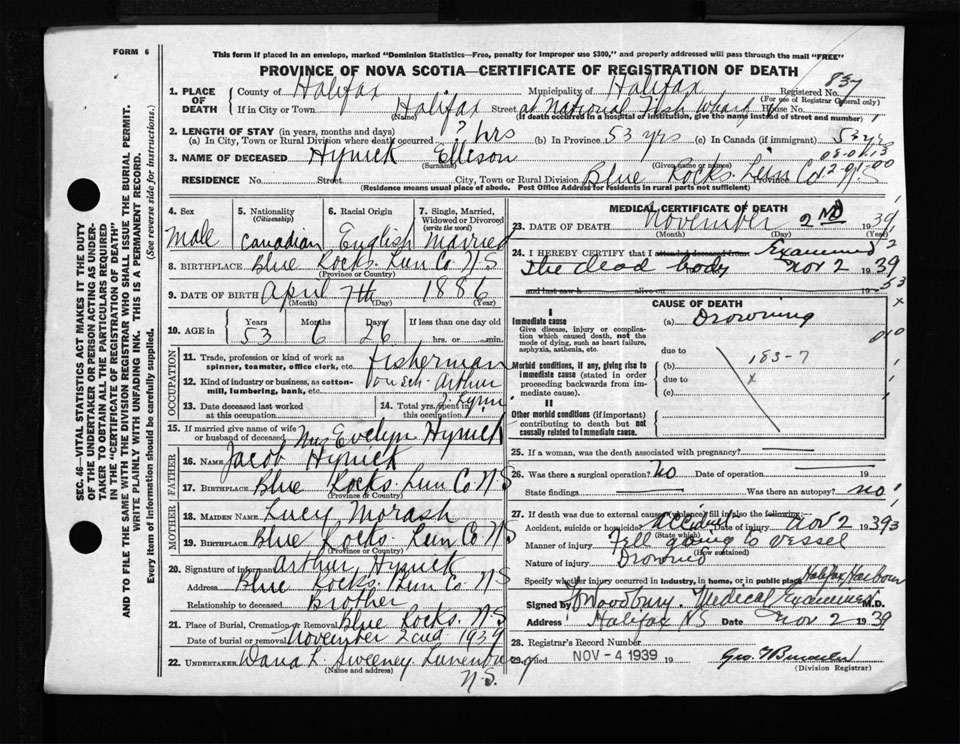 FORM 6
This form if placed in an envelope, marked "Dominion Statistics—Free, penalty for improper use $300," and properly addressed will pass through the mail "FREE"
PROVINCE OF NOVA SCOTIA—CERTIFICATE OF REGISTRATION OF DEATH
837
1. PLACE OF DEATH
County of Halifax Municipality of Halifax Registered No.
(For use of Registrar General only)
If in City or Town Halifax Street at National Fish Wharf House No.
(Name) (If death occurred in a hospital or institution, give its name instead of street and number)
2. LENGTH OF STAY (in years, months and days)
(a) In City, Town or Rural Division where death occurred ? hrs (b) In Province 53 yrs (c) In Canada (if immigrant) 53 yrs
3. NAME OF DECEASED Hynick Elleson
(Surname) (Given name or names)
RESIDENCE No. Street City, Town or Rural Division Blue Rocks. Lun Co N.S Province
(Residence means usual place of abode. Post Office Address for residents in rural parts not sufficient)
4. Sex 5. Nationality (Citizenship) 6. Racial Origin 7. Single, Married, Widowed or Divorced (write the word)
Male Canadian English Married
8. BIRTHPLACE Blue Rocks. Lun Co N S
(Province or Country)
9. DATE OF BIRTH April 7th 1886
(Month) (Day) (Year)
10. AGE in Years Months Days If less than one day old
53 6 26 hrs. or min.
OCCUPATION
11. Trade, profession or kind of work as spinner, teamster, office clerk, etc. Fisherman
12. Kind of industry or business, as cotton-mill, lumbering, bank, etc. on sch. Arthur J. Lynn
13. Date deceased last worked at this occupation
14. Total yrs. spent in this occupation
15. If married give name of wife or husband of deceased Mrs Evelyn Hynick
FATHER
16. NAME Jacob Hynick
17. BIRTHPLACE Blue Rocks. Lun Co N S
(Province or Country)
MOTHER
18. MAIDEN NAME Lucy Morash
19. BIRTHPLACE Blue Rocks. Lun Co. N S
(Province or Country)
20. Signature of informant Arthur Hynick
Address Blue Rocks. Lun Co. N S
Relationship to deceased Brother
21. Place of Burial, Cremation or Removal Blue Rocks. N.S
Date of burial or removal November 2cnd 1939
22. UNDERTAKER Dana L Sweeney. Lunenburg
(Name and address) N.S.
MEDICAL CERTIFICATE OF DEATH
23. DATE OF DEATH November 2nd 1939
(Month) (Day) (Year)
24. I HEREBY CERTIFY that I attended deceased from Examined
the dead body Nov 2 1939
and last saw h alive on 19
CAUSE OF DEATH
I
Immediate cause (a) Drowning
Give disease, injury or complication which caused death, not the mode of dying, such as heart failure, asphyxia, asthenia, etc.
due to
183-7
Morbid conditions, if any, giving rise to immediate cause (stated in order proceeding backwards from immediate cause). (b)
due to
(c)
II
Other morbid conditions (if important) contributing to death but not causally related to immediate cause.
25. If a woman, was the death associated with pregnancy?
26. Was there a surgical operation? No Date of operation 19
State findings Was there an autopsy? no
27. If death was due to external causes (violence) fill in also the following:
Accident, suicide or homicide? Accident Date of injury Nov 2 1939
(State which)
Manner of injury Fell going to vessel
(How sustained)
Nature of injury Drowned
Specify whether injury occurred in industry, in home, or in public place Halifax Harbour
Signed by Woodbury. Medical Examiner M.D.
Address Halifax NS Date Nov 2 1939
28. Registrar's Record Number
29. Filed NOV - 4 1939 19
(Division Registrar)
SEC. 46—VITAL STATISTICS ACT MAKES IT THE DUTY
OF THE UNDERTAKER OR PERSON ACTING AS UNDER-
TAKER TO OBTAIN ALL THE PARTICULARS REQUIRED
IN THE "CERTIFICATE OF REGISTRATION OF DEATH"
AND TO FILE THE SAME WITH THE DIVISION REGISTRAR WHO SHALL ISSUE THE BURIAL PERMIT.
WRITE PLAINLY WITH UNFADING INK. THIS IS A PERMANENT RECORD.
Every item of information should be carefully supplied. (See reverse side for instructions.)